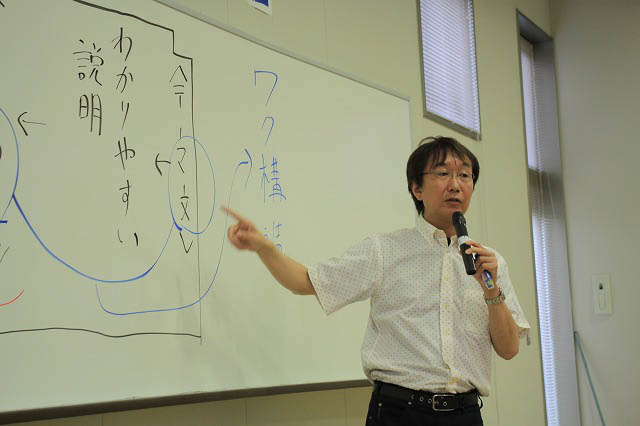 ワク構造
＜テーマ文＞
わかりやすい
説明